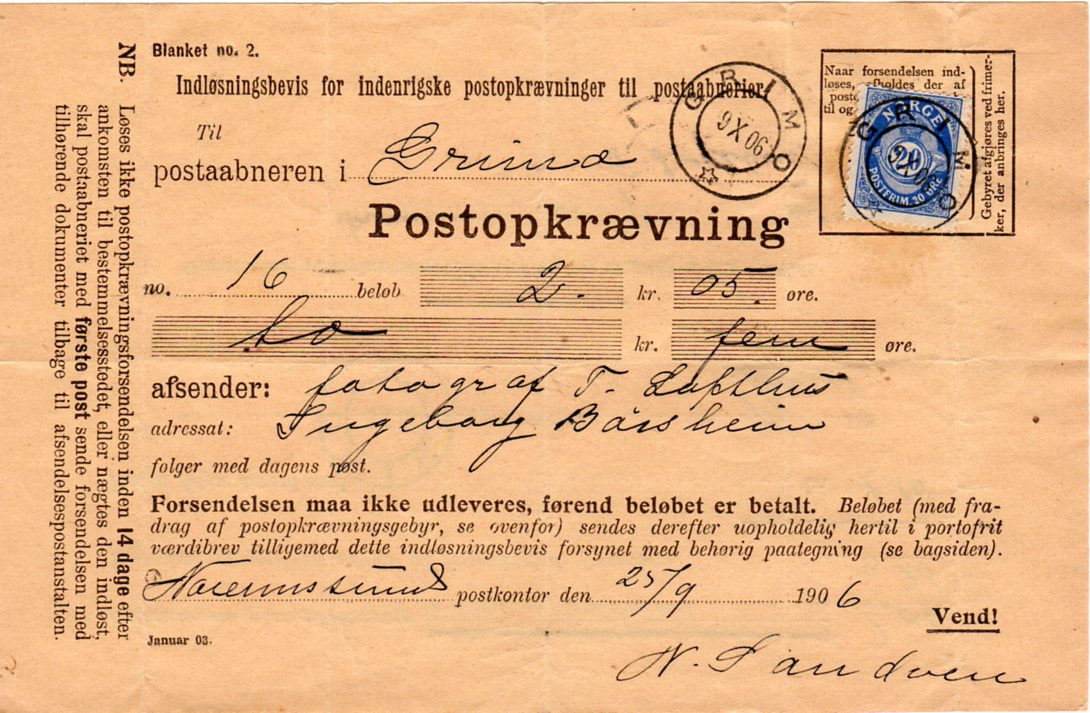 Blanket no. 2.
Indløsningsbevis for indenrigske postopkrævninger til postaabnerier.
Til
postaabneren i Grimo
Postopkrævning
no. 16 beløb 2. kr. 05. øre.
to kr. fem øre.
afsender: fotograf T. Lofthus
adressat: Ingeborg Børsheim
følger med dagens post.
Forsendelsen maa ikke udleveres, førend beløbet er betalt. Beløbet (med fra-
drag af postopkrævningsgebyr, se ovenfor) sendes derefter uopholdelig hertil i portofrit
værdibrev tilligemed dette indløsningsbevis forsynet med behørig paategning (se bagsiden).
postkontor den 25/9 1906
Vend!
Januar 03.
N. Sandven
NB. Løses ikke postopkrævningsforsendelsen inden 14 dage efter
ankomsten til bestemmelsesstedet, eller nægtes den indløst,
skal postaabneriet med første post sende forsendelsen med
tilhørende dokumenter tilbage til afsendelsespostanstalten.
GRIMO
9 X 06
Naar forsendelsen ind-
løses, afholdes der af
til og
NORGE
20
POSTFRIM. 20 ØRE
GRIMO
Gebyret afgjøres ved frimer-
ker, der anbringes her.